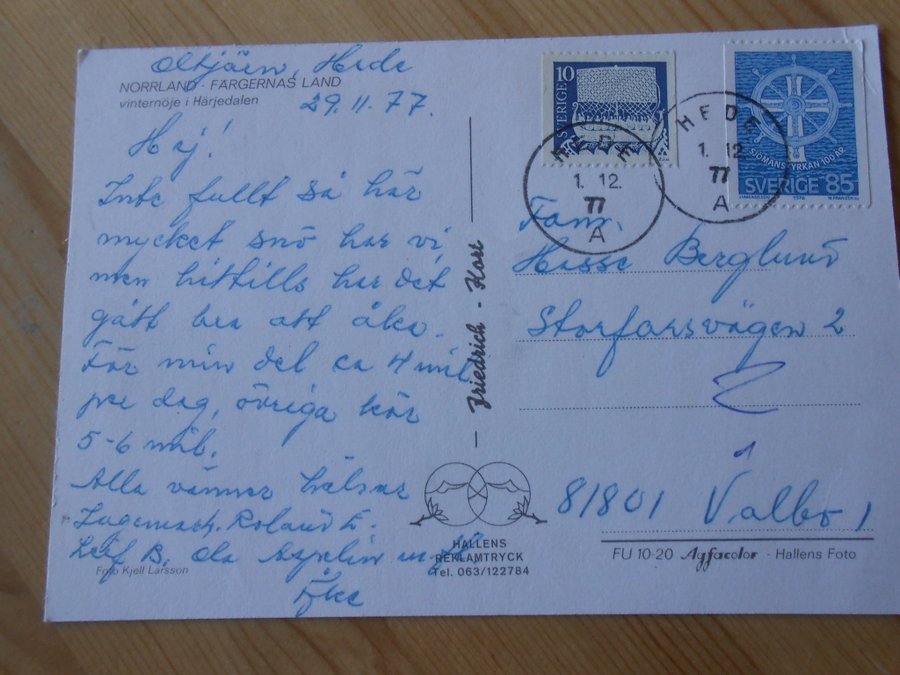 Hede
NORRLAND - FÄRGERNAS LAND
vinternöje i Härjedalen
29.11.77.
Hej!
Inte fullt så här
mycket snö har vi
men hittills har det
gått bra att åka.
För min del ca 4 mil
per dag, övriga kör
5-6 mil.
Alla vänner hälsar
Roland E.
Leif B. Ola
Åke
Foto Kjell Larsson
Friedrich - Kort
HALLENS
REKLAMTRYCK
Tel. 063/122784
SVERIGE 10
SJÖMANSKYRKAN 100 ÅR
SVERIGE 85
1976
HEDE
1. 12.
77
A
HEDE
1. 12.
77
A
Fam.
Hasse Berglund
Storfarsvägen 2
81801 Valbo 1
FU 10-20 Agfacolor - Hallens Foto